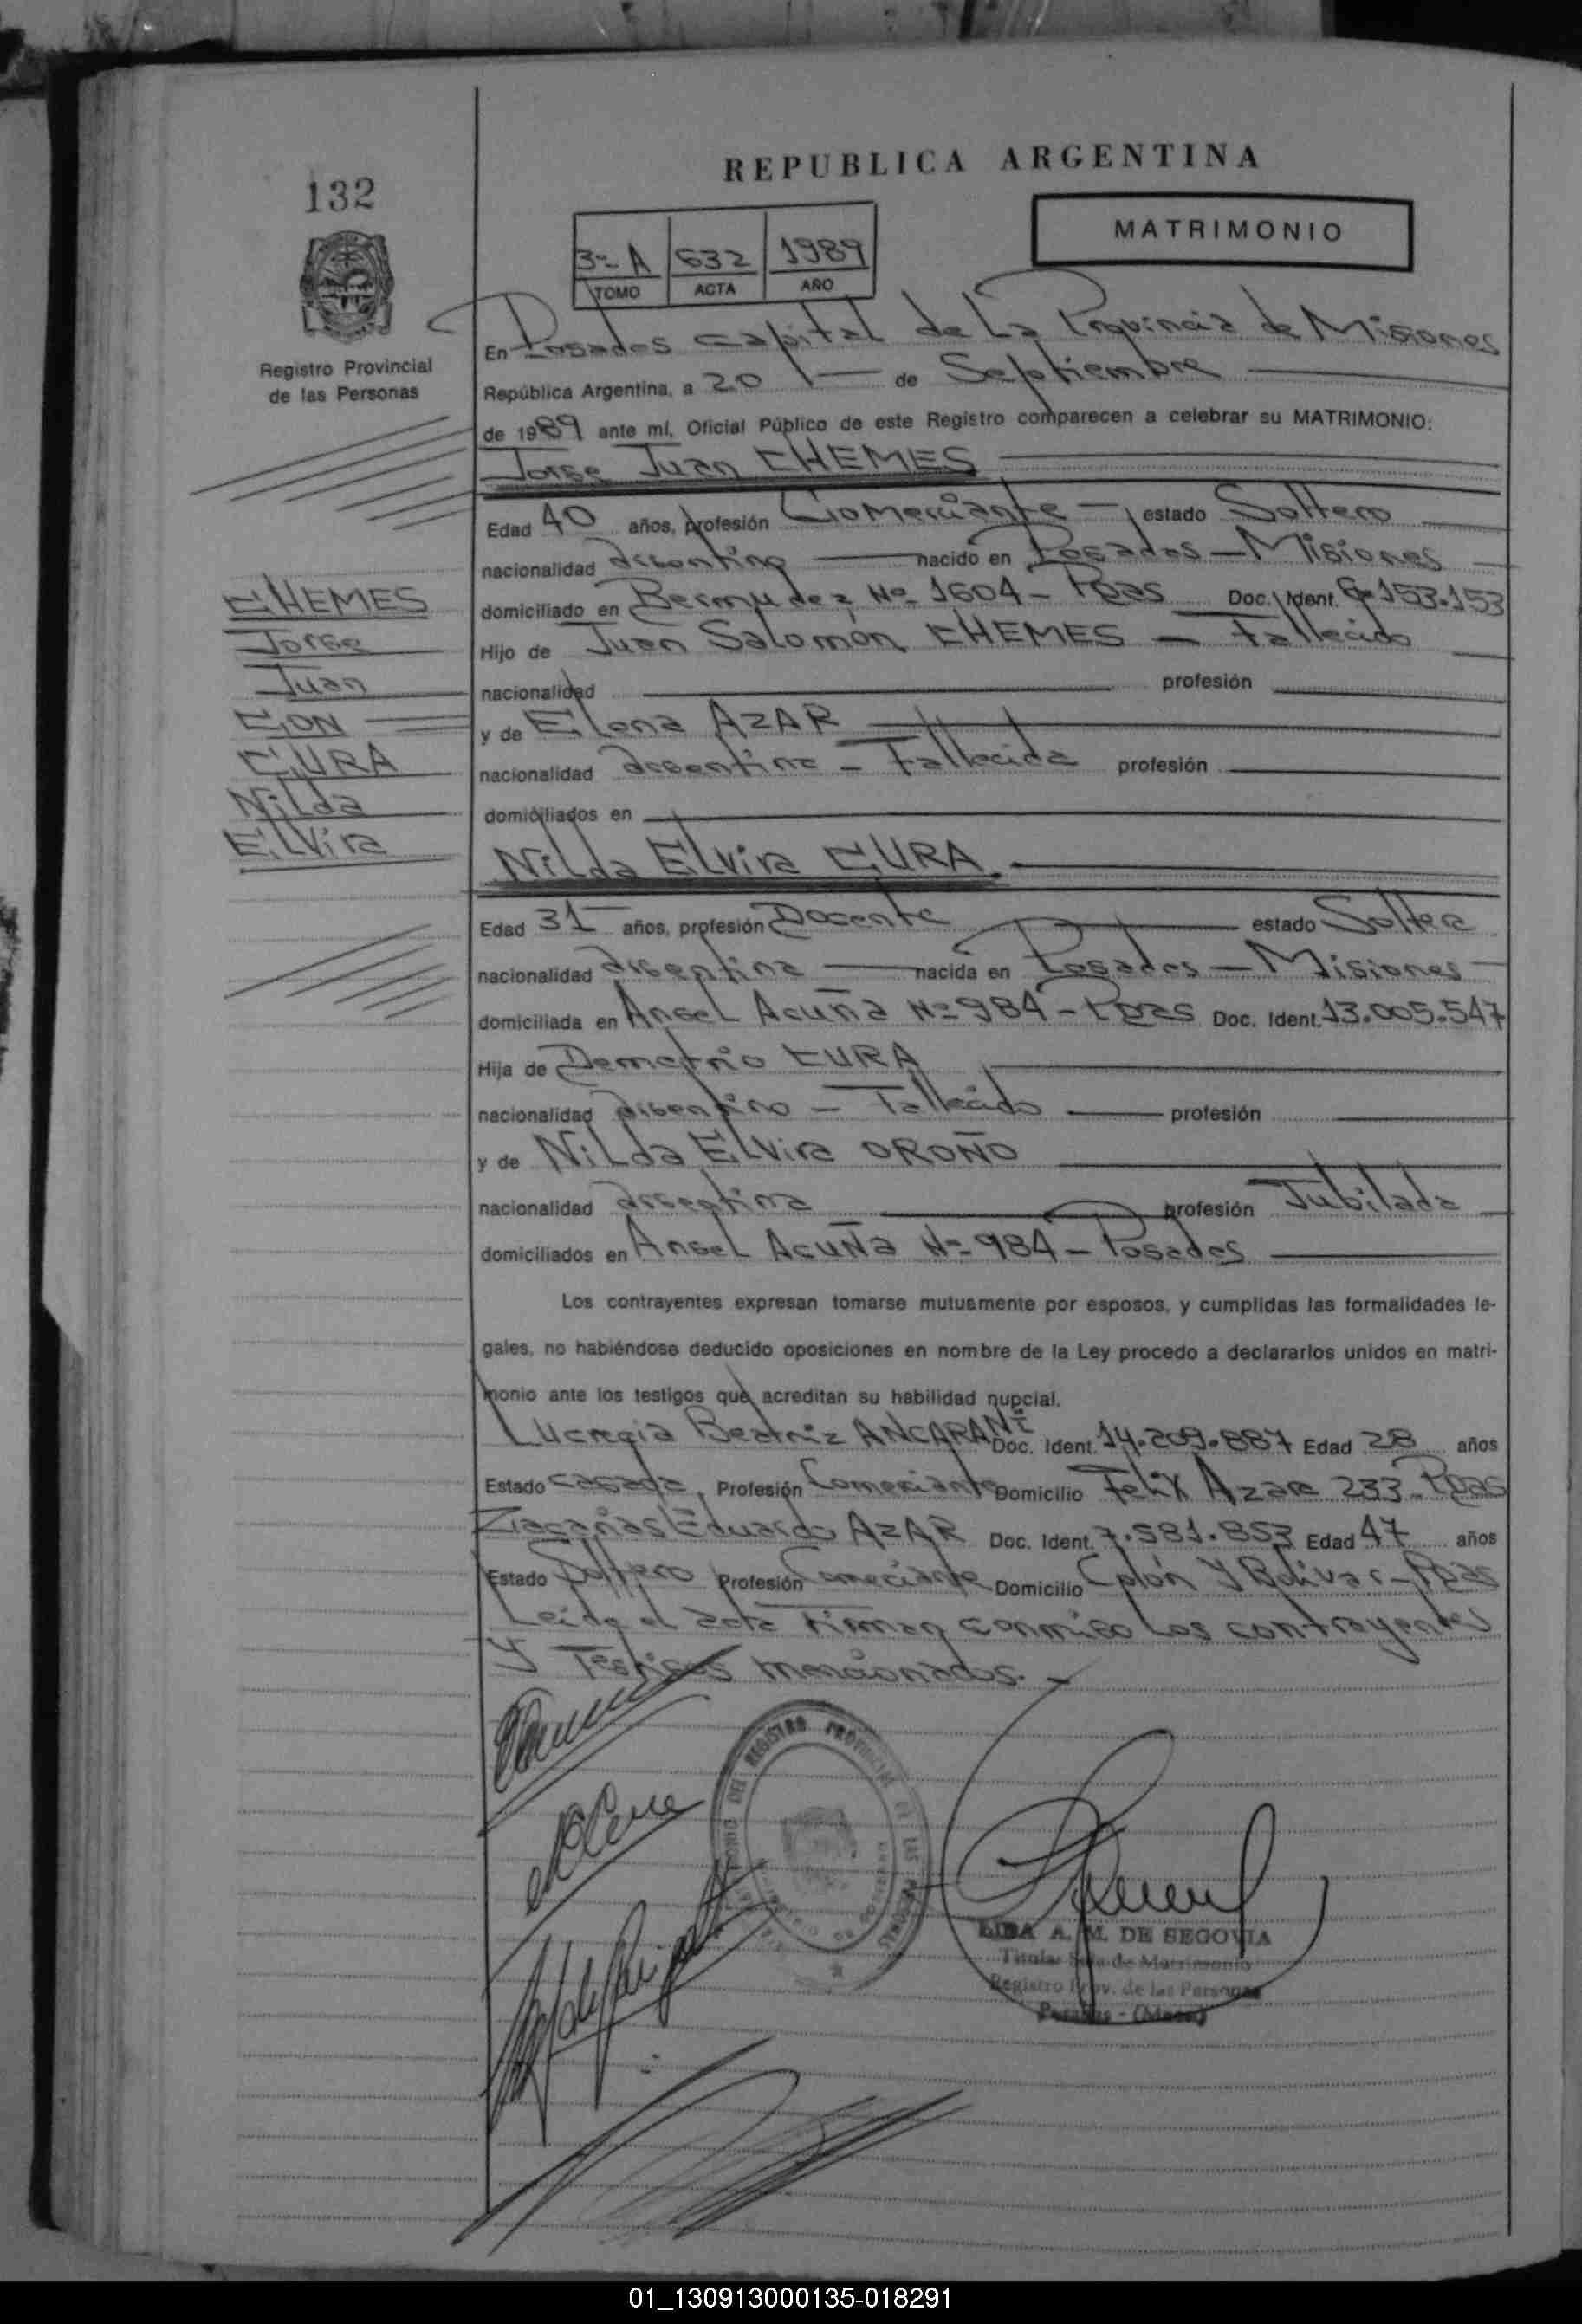 REPUBLICA ARGENTINA
132
MATRIMONIO
3º A 632 1989
TOMO ACTA AÑO
Registro Provincial
de las Personas
En Posadas capital de La Provincia de Misiones
República Argentina, a 20 de Septiembre
de 1989 ante mí, Oficial Público de este Registro comparecen a celebrar su MATRIMONIO:
Jorge Juan CHEMES
Edad 40 años, profesión Comerciante estado Soltero
nacionalidad argentino nacido en Posadas - Misiones
domiciliado en Bermudez Nº 1604 - Pdas Doc. Ident. 8.153.153
Hijo de Juan Salomón CHEMES - Fallecido
nacionalidad profesión
y de Elena AZAR
nacionalidad argentina - Fallecida profesión
domiciliados en
CHEMES
Jorge
Juan
CON
CURA
Nilda
Elvira
Nilda Elvira CURA.
Edad 31 años, profesión Docente estado Soltera
nacionalidad argentina nacida en Posadas - Misiones
domiciliada en Angel Acuña Nº 984 - Pdas Doc. Ident. 13.005.547
Hija de Demetrio CURA
nacionalidad argentino - Fallecido profesión
y de Nilda Elvira OROÑO
nacionalidad argentina profesión Jubilada
domiciliados en Angel Acuña Nº 984 - Posadas
Los contrayentes expresan tomarse mutuamente por esposos, y cumplidas las formalidades le-
gales, no habiéndose deducido oposiciones en nombre de la Ley procedo a declararlos unidos en matri-
monio ante los testigos que acreditan su habilidad nupcial.
Lucrecia Beatriz ANCARANI Doc. Ident. 14.209.887 Edad 28 años
Estado casada, Profesión Comerciante Domicilio Felix Azara 233 - Pdas
Eduardo AZAR Doc. Ident. 7.581.853 Edad 47 años
Estado Soltero Profesión Comerciante Domicilio Colón Y Bolivar - Pdas
Leida el acta Firman conmigo Los contrayentes
Y Testigos mencionados.
REGISTRO PROVINCIAL DE LAS PERSONAS
LIDA A. M. DE SEGOVIA
Titular Sala de Matrimonio
Registro Prov. de las Personas
Posadas - (Mnes)
01_130913000135-018291